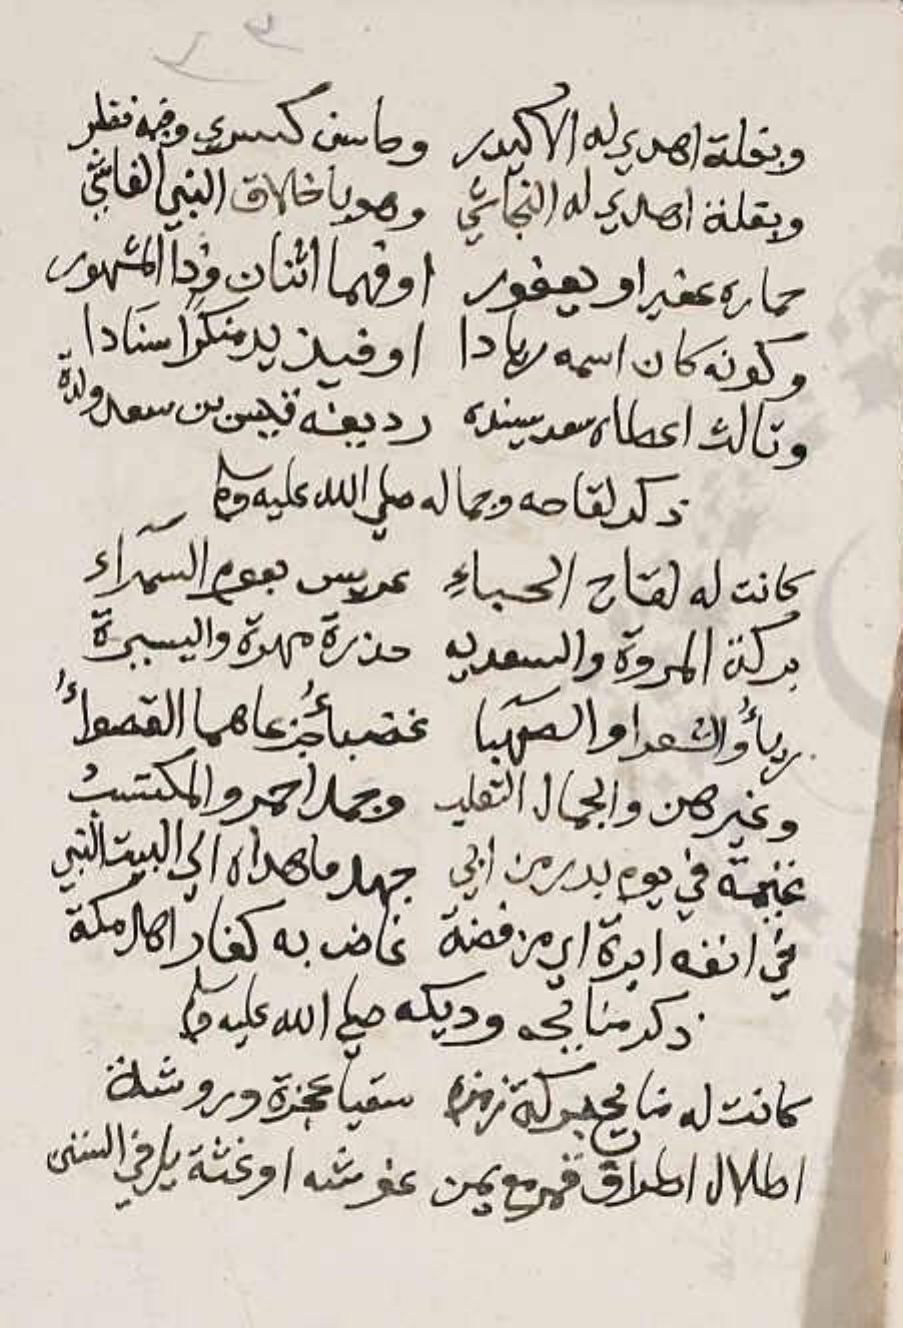 وبغلة اهدي له الاكيدر وما من كسري وفيه نظر
وبغلة اهدي له النجاشي وهو باخلاق النبي الفاشي
حماره عفير او يعفور او فهما اثنان وذا المشهور
وكونه كان اسمه زيادا او فيذ يد منكرا سنادا
وثالث اعطاه سعد سيده رديفه قيس بن سعد ولده
ذكر لقاحه وجماله صلي الله عليه وسلم
كانت له لقاح الحناء عريس بغوم السمراء
بركة المروة والسعديه حذرة مهرة واليسيرة
رياء والشعرا والصهبا غضباء جزعا هما القصواء
وغيرهن والجمال الثعلب وجمل احمر والمكتسب
غنيمة في يوم بدر من ابي جهل ماهداه الي البيت النبي
في انفه ابرة اي من فضة غاض به كفار اهل مكة
ذكر منايحه وديكه صلي الله عليه وسلم
كانت له منايح بركة زمزم سقيا عجزة وروشة
اطلال اطراق قمر مع يمن عوشه او غثة يل في السنن